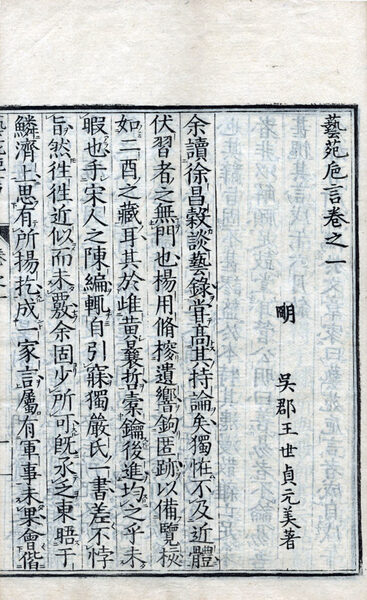 藝苑巵言卷之一
明　吳郡王世貞元美著
余讀徐昌穀談藝錄嘗高其持論矣獨恠不及近體
伏習者之無門也揚用脩搜遺響鉤匿跡以備覽核
如二酉之藏耳其於雌黃曩哲橐鑰後進均之乎未
暇也手宋人之陳編輒自引寐獨嚴氏一書差不悖
旨然徃徃近似而未覈余固少所可旣承乏東晤于
鱗濟上思有所揚扢成一家言屬有軍事未果會偕